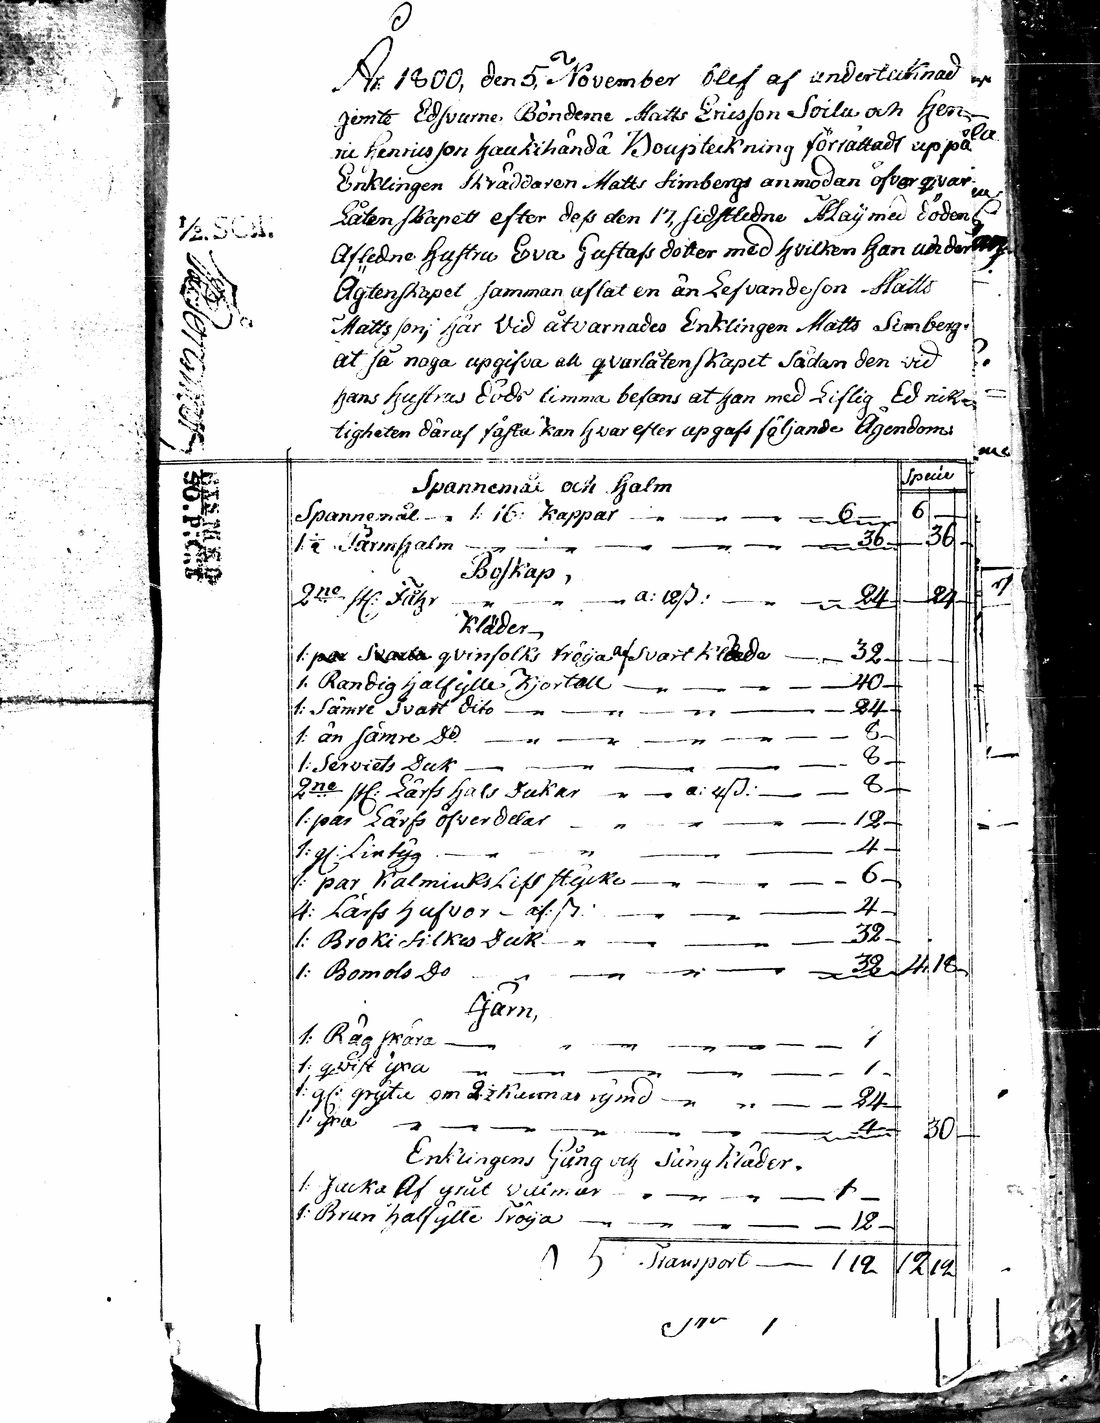 År 1800, den 5, November blef af undertecknad
jemte Edsvurne Bönderne Matts Ericsson Soila och Hen-
ric Henricsson Haukihändä Boupteckning förrättadt uppå
Enklingen Skräddaren Matts Simbergs anmodan öfver qvar-
Låtenskapett efter dess den 17, sidstledne Maÿ med döden
Afledne Hustru Eva Gustafsdotter med hvilken han under
Ägtenskapet samman aflat en än Lefvande son Matts
Mattsson; här vid åtvarnades Enklingen Matts Simberg
at så noga upgifva all qvarlåtenskapet sådan den vid
hans Hustrus döds timma befans at han med Liflig Ed rik-
tigheten däraf fästa kan hvar efter upgafs följande Ägendom
1/2. SCH.
Specie
Spannemål och Halm
Spannemål 1: 16: kappar 6 6
1:½ Färmhalm 36 36
Boskap,
2ne st: Fåhr a: 12ß: 24 24
Kläder,
1: qvinfolks tröija af Svart Kläde 32
1: Randig halfÿlle Kjortell 40
1: Sämre Svart dito 24
1: än sämre Do 8
1: Serviets Duk 8
2ne st: Lärfs Hals Dukar a: 4ß: 8
1: par Lärfs öfverdelar 12
1: gl: Lintÿg 4
1: par Kalminks Lifstÿcke 6
4: Lärfs Hufvor 4
1: Broki Silkes Duk 32
1: Bomols Do 32 4 18
Järn,
1: Rågskära 1
1: qvist ÿxa 1
1: gl: grÿta om 2½ Kannas rÿmd 24
1: ÿxa 4 30
Enklingens Gång och Säng Kläder.
1: Jacka Af gråt valmar 1
1: Brun halfÿlle Tröija 12
Transport 1 12 12 12